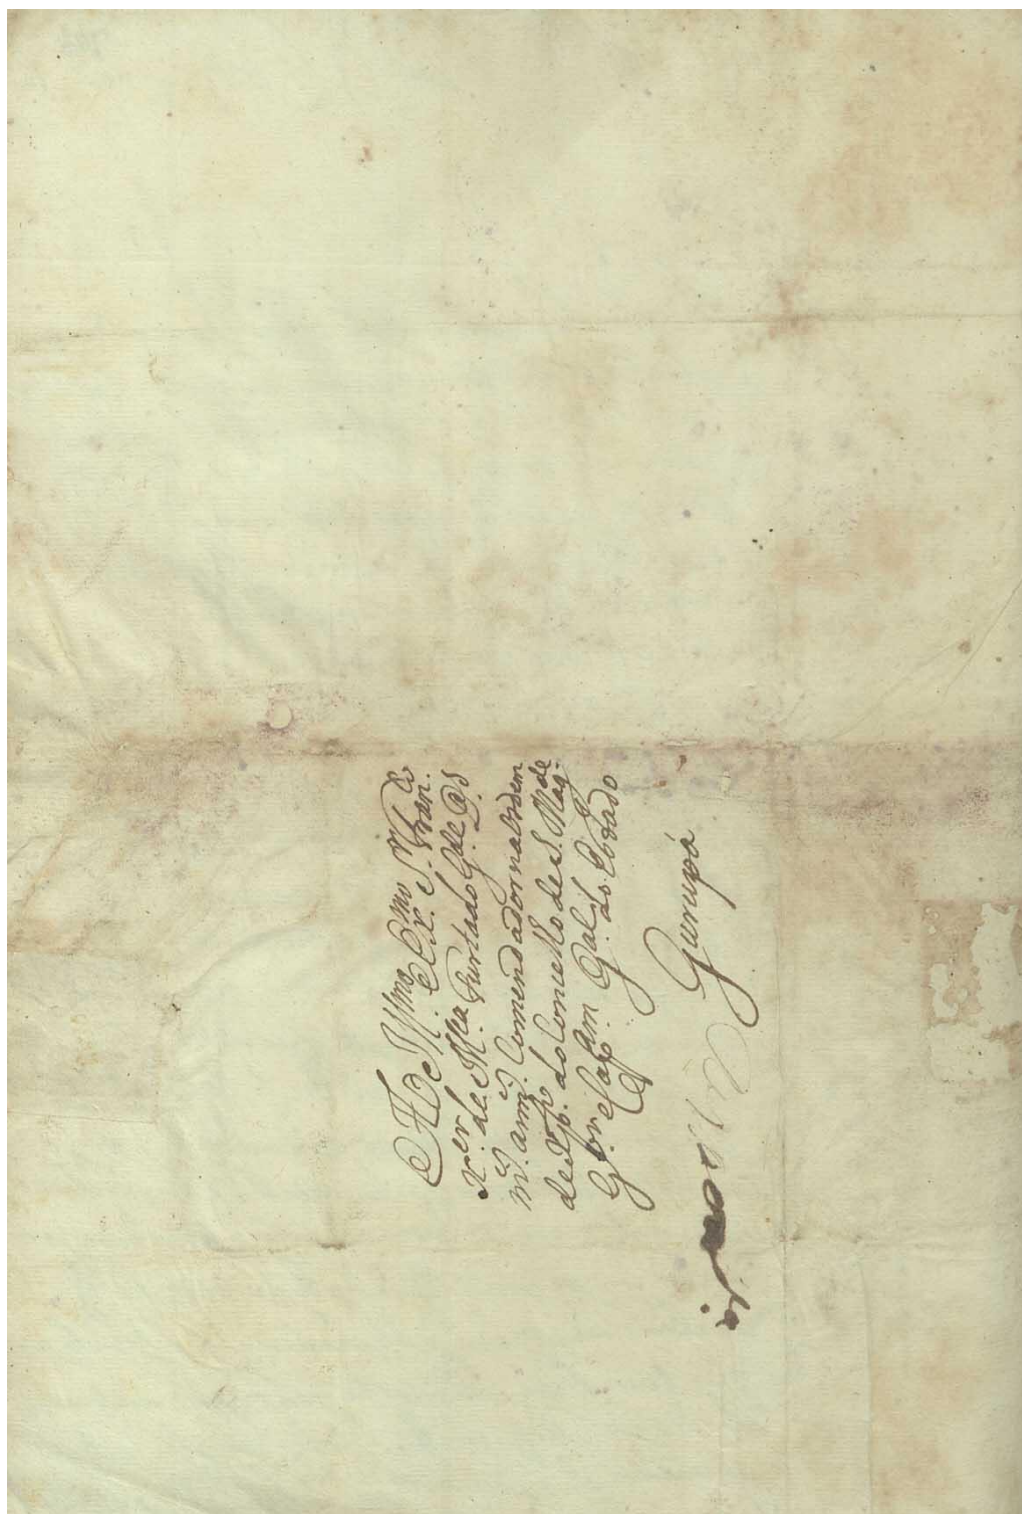 Ao Illmo. e Exmo. Sr. Franco.
Xer. de Mca. Furtado Gde. Ds
ms. anns. Comendador na Ordem
de Xpo. do Concelho de S. Magde.
Gor. e Capam. Gal. do Estado
Gurupá